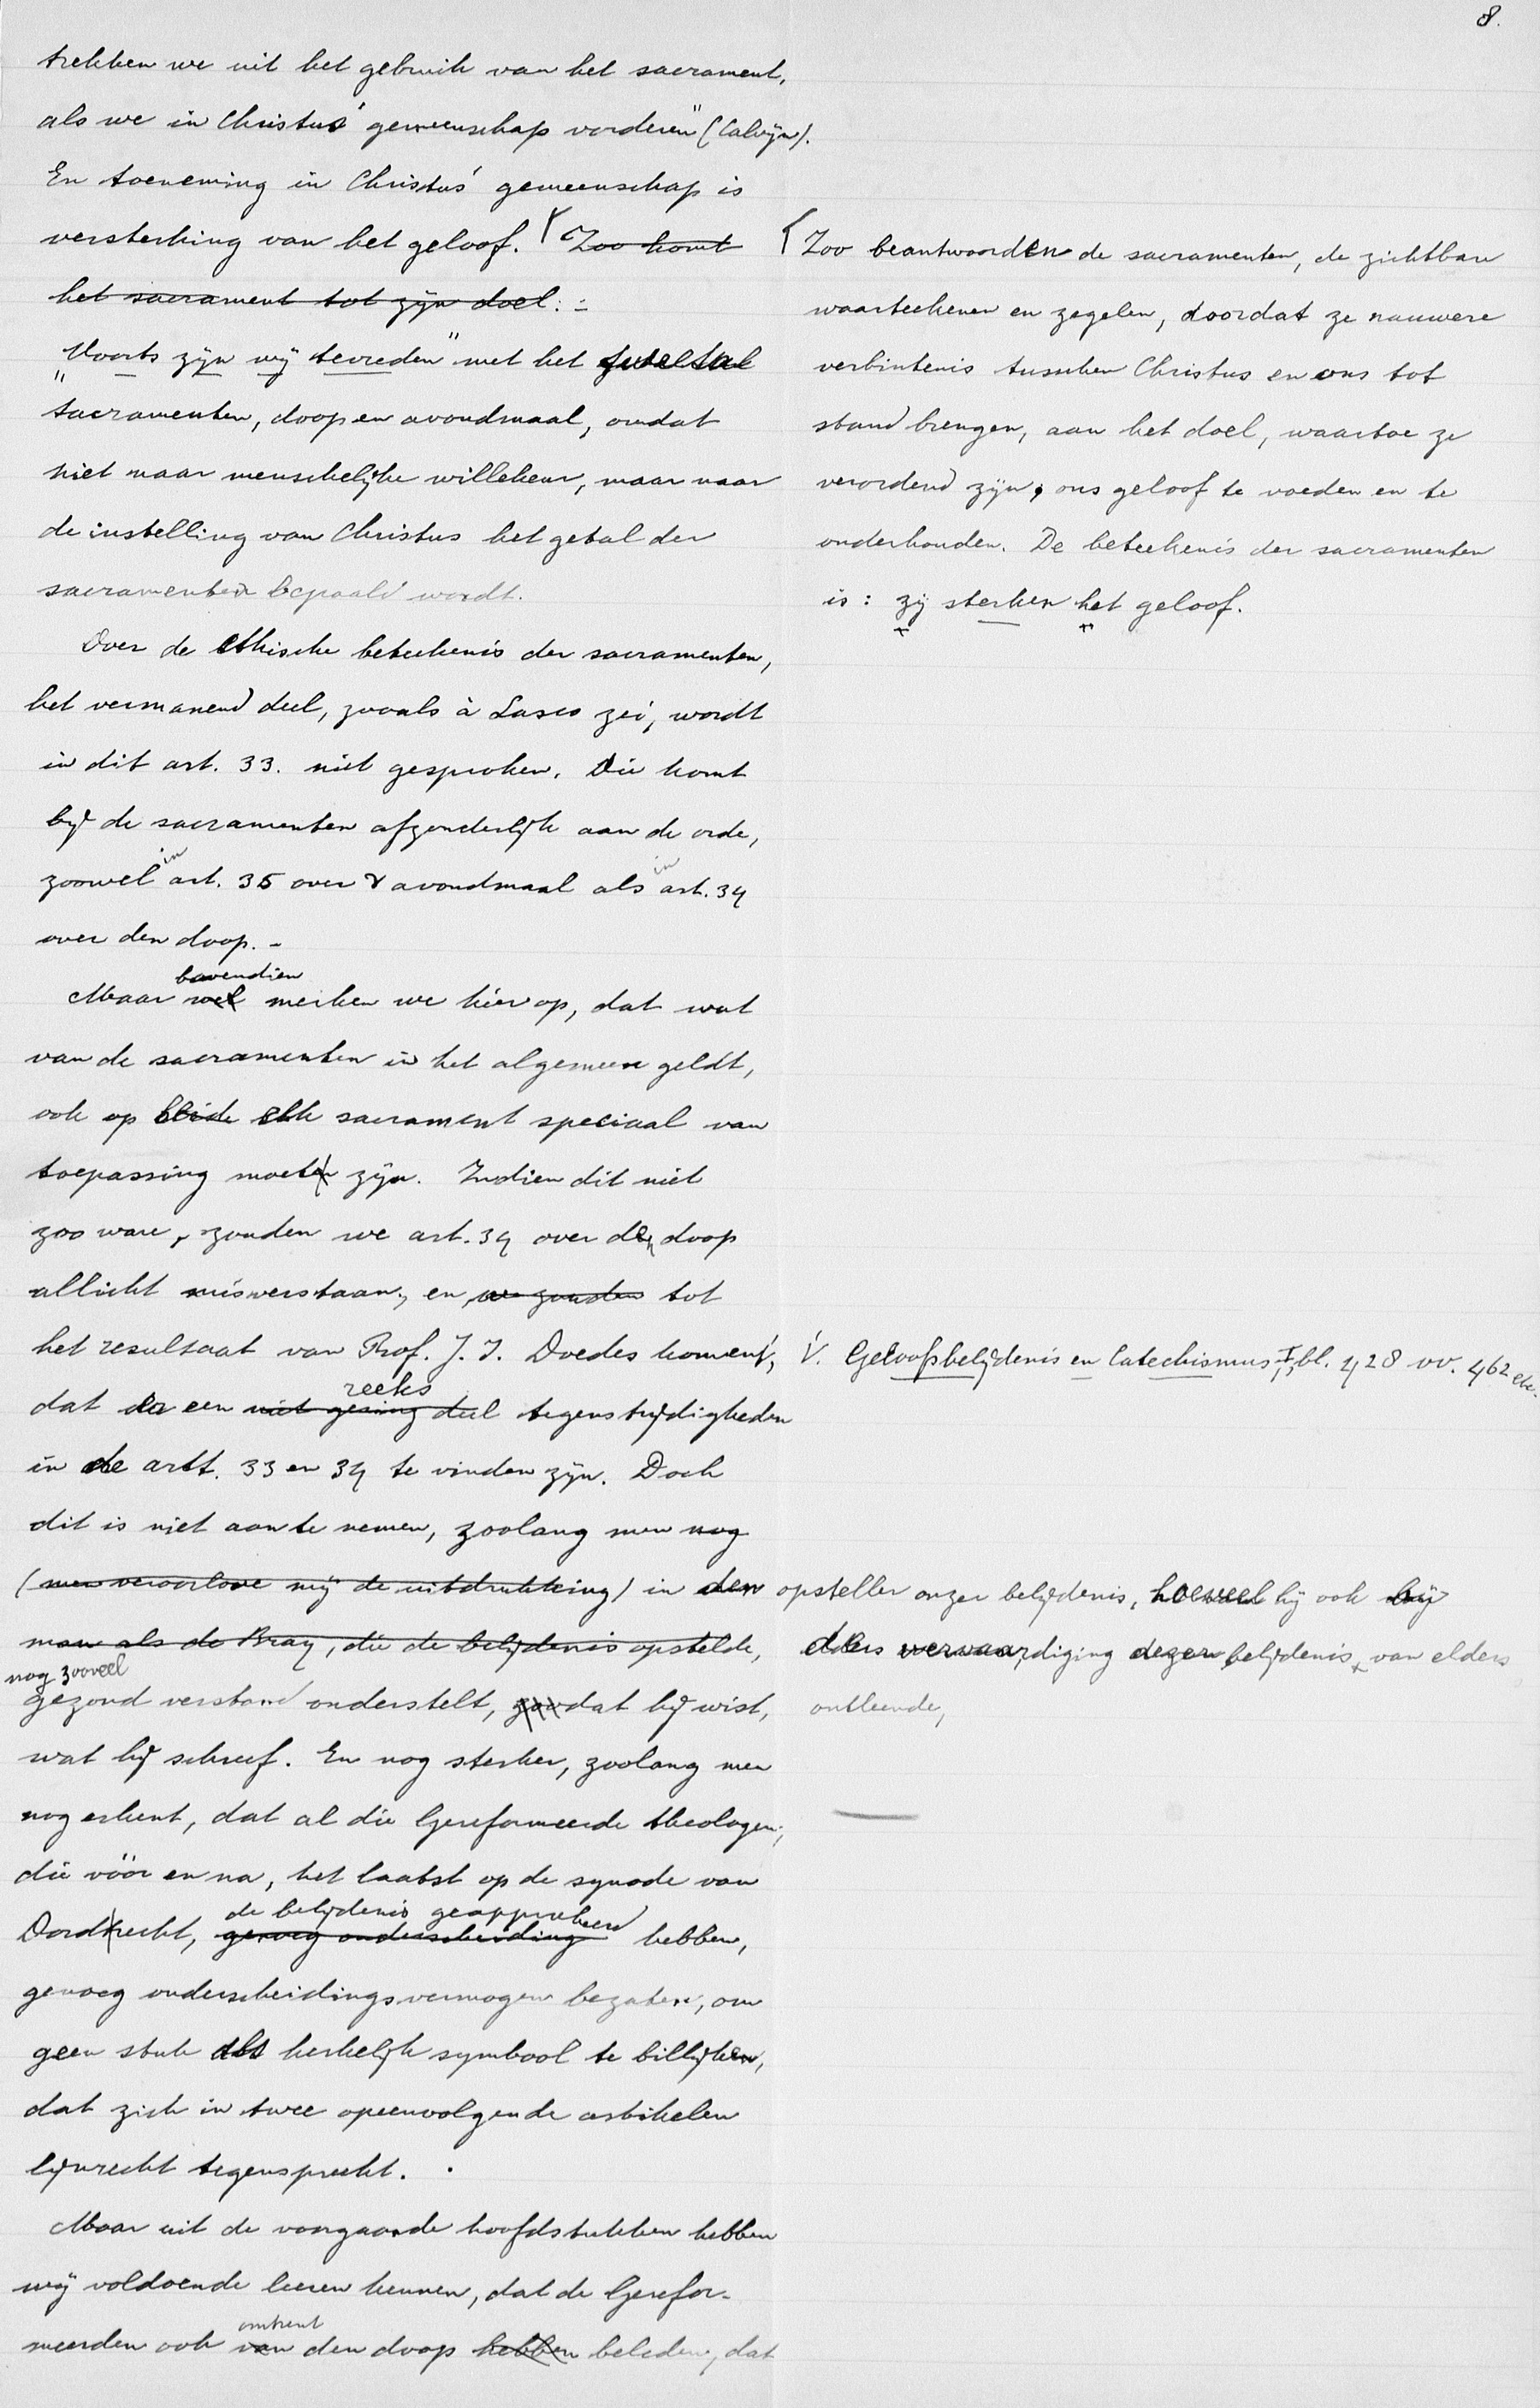 8.
trekken we uit het gebruik van het sacrament,
als we in Christus' gemeenschap vorderen" (Calvijn).
En toeneming in Christus' gemeenschap is
versterking van het geloof. Zoo komt
het sacrament tot zijn doel. -
"Voorts zijn wij tevreden" met het
sacramenten, doop en avondmaal, omdat
niet naar menschelijke willekeur, maar naar
de instelling van Christus het getal der
sacramenten bepaald wordt.
Over de ethische beteekenis der sacramenten,
het vermanend deel, zooals à Lasco zei, wordt
in dit art. 33. niet gesproken. Die komt
bij de sacramenten afzonderlijk aan de orde,
zoowel in art. 35 over 't avondmaal als in art. 34
over den doop. -
Maar wel bovendien merken we hier op, dat wat
van de sacramenten in het algemeen geldt,
ook op beide elk sacrament speciaal van
toepassing moeten zijn. Indien dit niet
zoo ware, zouden we art. 34 over den doop
allicht misverstaan, en we zouden tot
het resultaat van Prof. J. I. Doedes komen,
dat er een niet gering deel reeks tegenstrijdigheden
in de artt. 33 en 34 te vinden zijn. Doch
dit is niet aan te nemen, zoolang men nog
(men veroorlove mij de uitdrukking) in den
man als de Bray, die de belijdenis opstelde,
nog zooveel
gezond verstand onderstelt, dat hij wist,
wat hij schreef. En nog sterker, zoolang men
nog erkent, dat al die Gereformeerde theologen,
die vóór en na, het laatst op de synode van
Dordrecht, genoeg onderscheiding de belijdenis geapprobeerd hebben,
genoeg onderscheidingsvermogen bezaten, om
geen stuk als kerkelijk symbool te billijken,
dat zich in twee opeenvolgende artikelen
lijnrecht tegenspreekt.
Maar uit de voorgaande hoofdstukken hebben
wij voldoende leeren kennen, dat de Gerefor-
meerden ook van omtrent den doop hebben beleden, dat
Zoo beantwoorden de sacramenten, de zichtbare
waarteekenen en zegelen, doordat ze nauwere
verbintenis tusschen Christus en ons tot
stand brengen, aan het doel, waartoe ze
verordend zijn, ons geloof te voeden en te
onderhouden. De beteekenis der sacramenten
is: zij sterken het geloof.
V. Geloofsbelijdenis en Catechismus I, bl. 428 vv. 462 etc.
opsteller onzer belijdenis, hoeveel hij ook bij
vervaardiging dezer belijdenis van elders
ontleende,